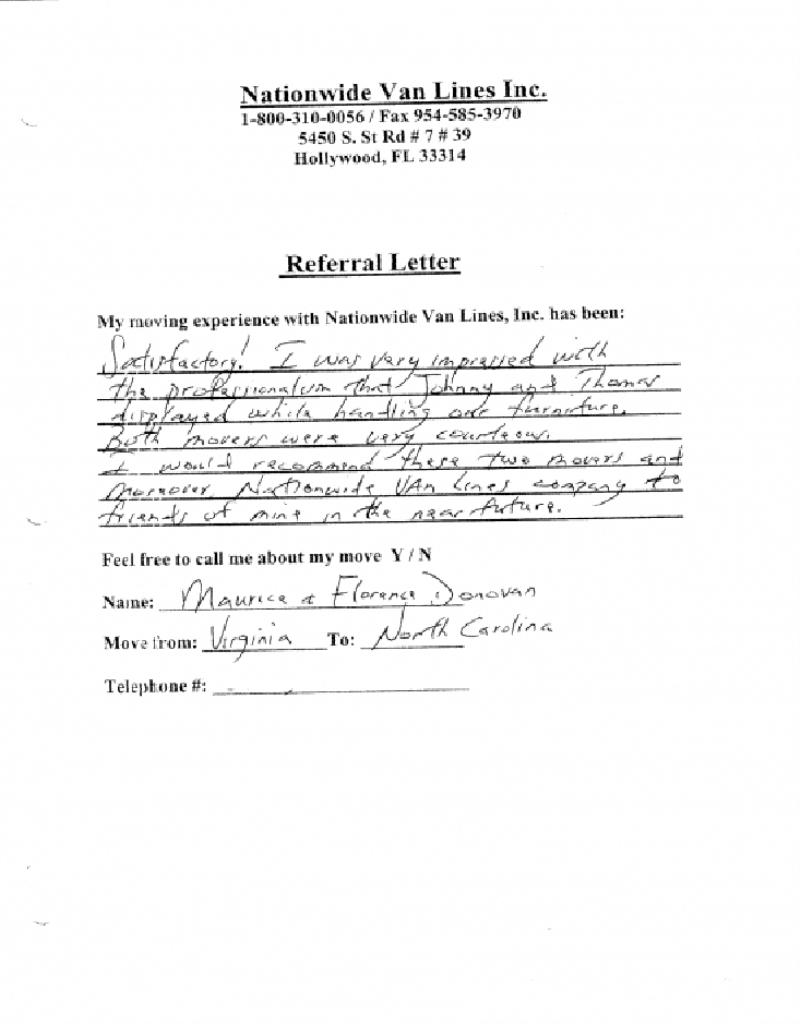 Nationwide Van Lines Inc.
1-800-310-0056 / Fax 954-585-3970
5450 S. St Rd # 7 # 39
Hollywood, FL 33314
Referral Letter
My moving experience with Nationwide Van Lines, Inc. has been:
Satisfactory! I was very impressed with
the professionalism that Johnny and Thomas
displayed while handling our furniture.
Both movers were very courteous.
I would recommend these two movers and
moreover Nationwide VAn Lines company to
friends of mine in the near future.
Feel free to call me about my move Y / N
Name: Maurice & Florence Donovan
Move from: Virginia To: North Carolina
Telephone #: